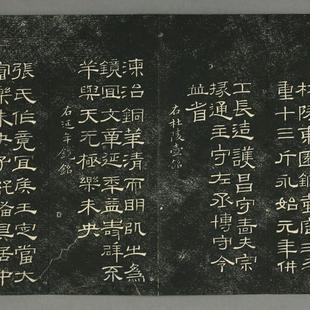 杜陵東園銅壺容三斗
重十三斤永始元年供
工長造護昌守嗇夫宗
掾通主守左丞博守令
並省
右杜陵壺銘
湅治銅華清而明以之為
鏡宜文章延年益壽辟不
羊與天无極樂未央
右延年鏡銘
張氏作竟宜侯王家當大
富樂未央子孫備具居中